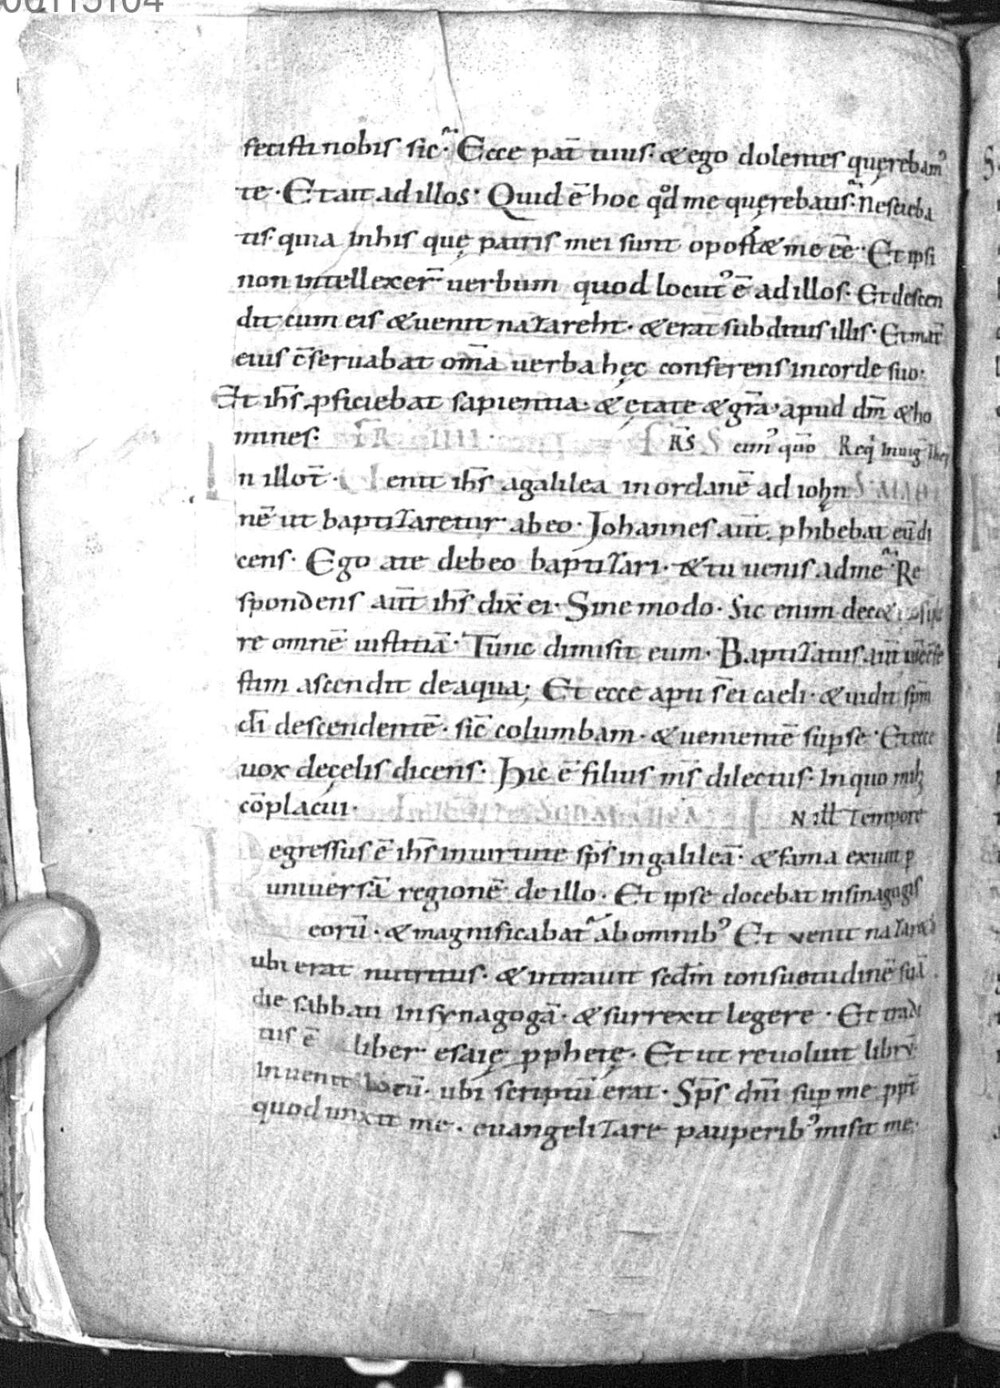 00115104
fecisti nobis sic· Ecce pat̄ tuus· & ego dolentes quęrebam᾽
te· Et ait ad illos· Quid ē hoc qd̕ me quęrebatis· Nesciebа
tis quia Inhis quę patris mei sunt oportet me eē· Et ipsi
non intellexer̄ uerbum quod locut᾽ ē ad illos· Et descen
dit cum eis & uenit naZareht· & erat subditus illis· Et mat̄
eius c̄seruabat om̄a uerba hęc conferens incorde suo·
Et ih̄s ꝓficiebat sapientia· & ętate & gr̄a· apud dm̄ & ho
mines· R̄S cum᾽ quō Req̄
n illot̄· enit ih̄s agalilea iniordanē ad iohn
nē ut baptiZaretur abeo· Johannes aut̄ ꝓhibebat eū di
cens· Ego a te debeo baptiZari· & tu uenis adme· Re
spondens aut̄ ih̄s dix̄ ei· Sine modo· Sic enim dec&
re omnē iustitiā· Tunc dimisit eum· BaptiZatus aut̄
stim ascendit deaqua; Et ecce apti s̄ ei caeli· & uidit sp̄m
dī descendentē· sic̄ columbam· & uenientē sup se· Et ecce
uox decęlis dicens· Hic ē filius m̄s dilectus· In quo mih
cōplacui· N ill̄ Tempore
egressus ē ih̄s inuirtute sp̄s ingalileā· & fama exiit ꝑ
uniuersā regionē de illo· Et ipse docebat insinagogis
eorū· & magnificabat᾽ ab omnib᾽ Et uenit naZareth
ubi erat nutritus· & intrauit secdm̄ consuetudinē suā
die sabbati Insynagogā· & surrexit legere· Et tradi
tus ē liber esaię ꝓphetę· Et ut reuoluit librū
Inuenit locū· ubi scriptū erat· Sp̄s dn̄i sup me ppt̄
quod unxit me· euangeliZare pauperib᾽ misit me·